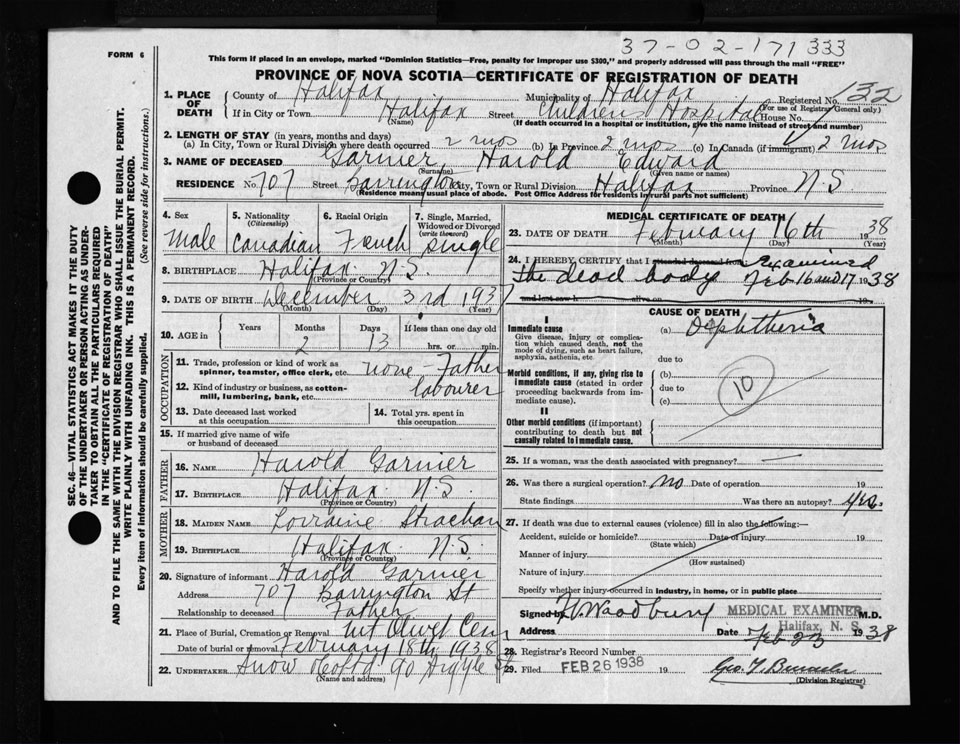 37-02-171 333
FORM 6
This form if placed in an envelope, marked "Dominion Statistics—Free, penalty for improper use $300," and properly addressed will pass through the mail "FREE"
PROVINCE OF NOVA SCOTIA—CERTIFICATE OF REGISTRATION OF DEATH
SEC. 46—VITAL STATISTICS ACT MAKES IT THE DUTY
OF THE UNDERTAKER OR PERSON ACTING AS UNDER-
TAKER TO OBTAIN ALL THE PARTICULARS REQUIRED
IN THE "CERTIFICATE OF REGISTRATION OF DEATH"
AND TO FILE THE SAME WITH THE DIVISION REGISTRAR WHO SHALL ISSUE THE BURIAL PERMIT.
WRITE PLAINLY WITH UNFADING INK. THIS IS A PERMANENT RECORD.
Every item of information should be carefully supplied. (See reverse side for instructions.)
1. PLACE OF DEATH
County of Halifax Municipality of Halifax Registered No. 132
(For use of Registrar General only.)
If in City or Town Halifax Street Children's Hospital House No.
(Name) (If death occurred in a hospital or institution, give the name instead of street and number)
2. LENGTH OF STAY (in years, months and days)
(a) In City, Town or Rural Division where death occurred 2 mos (b) In Province 2 mos (c) In Canada (if immigrant) 2 mos
3. NAME OF DECEASED Garnier, Harold Edward
(Surname) (Given name or names)
RESIDENCE No. 707 Street Barrington City, Town or Rural Division Halifax Province N.S
(Residence means usual place of abode. Post Office Address for residents in rural parts not sufficient)
4. Sex Male
5. Nationality (Citizenship) Canadian
6. Racial Origin French
7. Single, Married, Widowed or Divorced (write the word) single
8. BIRTHPLACE Halifax N.S.
(Province or Country)
9. DATE OF BIRTH December 3rd 1937
(Month) (Day) (Year)
10. AGE in Years Months 2 Days 13 If less than one day old hrs. or min.
OCCUPATION
11. Trade, profession or kind of work as spinner, teamster, office clerk, etc. none - Father
12. Kind of industry or business, as cotton-mill, lumbering, bank, etc. labourer
13. Date deceased last worked at this occupation
14. Total yrs. spent in this occupation
15. If married give name of wife or husband of deceased
FATHER
16. NAME Harold Garnier
17. BIRTHPLACE Halifax N.S.
(Province or Country)
MOTHER
18. MAIDEN NAME Lorraine Strachan
19. BIRTHPLACE Halifax N.S.
(Province or Country)
20. Signature of informant Harold Garnier
Address 707 Barrington St
Relationship to deceased Father
21. Place of Burial, Cremation or Removal Mt Olivet Cem
Date of burial or removal February 18th 1938
22. UNDERTAKER Snow & Co Ltd 90 Argyle St
(Name and address)
MEDICAL CERTIFICATE OF DEATH
23. DATE OF DEATH February 16th 1938
(Month) (Day) (Year)
24. I HEREBY CERTIFY that I attended deceased from Examined
the dead body Feb 16 and 17 1938
and last saw h alive on 19
CAUSE OF DEATH
I
Immediate cause
Give disease, injury or complication which caused death, not the mode of dying, such as heart failure, asphyxia, asthenia, etc.
(a) Diphtheria
due to
Morbid conditions, if any, giving rise to immediate cause (stated in order proceeding backwards from immediate cause).
(b)
due to
(c)
10
II
Other morbid conditions (if important) contributing to death but not causally related to immediate cause.
25. If a woman, was the death associated with pregnancy? —
26. Was there a surgical operation? no Date of operation 19
State findings Was there an autopsy? yes.
27. If death was due to external causes (violence) fill in also the following:—
Accident, suicide or homicide? Date of injury 19
(State which)
Manner of injury
(How sustained)
Nature of injury
Specify whether injury occurred in industry, in home, or in public place
Signed by Woodbury MEDICAL EXAMINER M.D.
Halifax, N. S.
Address Date Feb 23 1938
28. Registrar's Record Number
29. Filed FEB 26 1938 19
(Division Registrar)